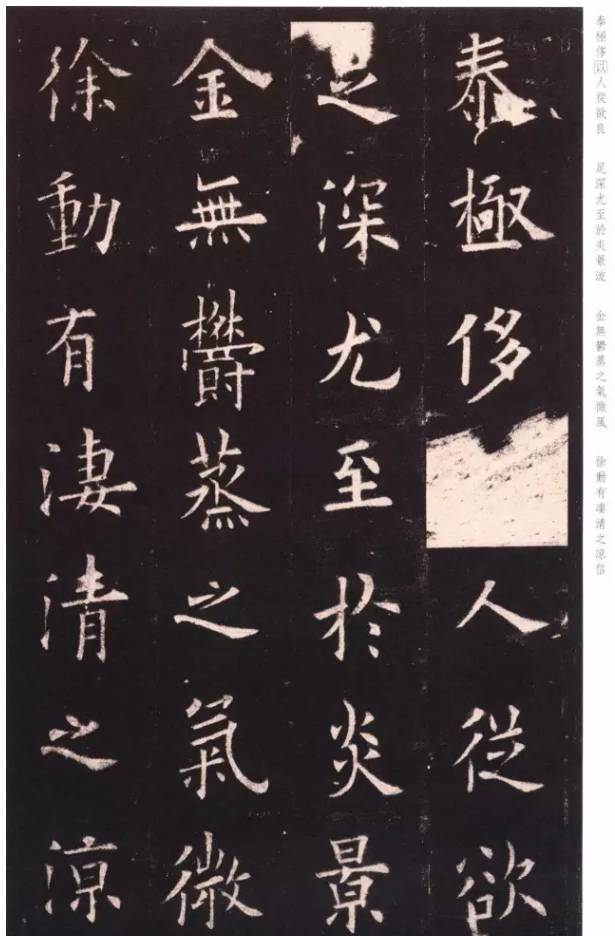 泰極侈以人從欲良 足深尤至於炎景流 金無鬱蒸之氣微風 徐動有凄清之凉信
泰極侈人從欲
之深尤至於炎景
金無欝蒸之氣微
徐動有淒清之涼